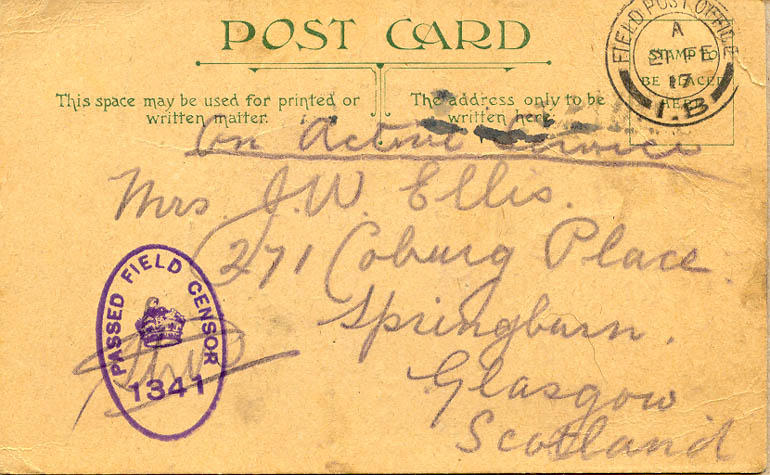 POST CARD
FIELD POST OFFICE
A
FE
17
1.B
STAMP TO
BE PLACED
HERE
This space may be used for printed or
written matter.
The address only to be
written here.
On Active Service
Mrs. J.W. Ellis.
271 Coburg Place.
Springburn.
Glasgow
Scotland
PASSED FIELD CENSOR
1341